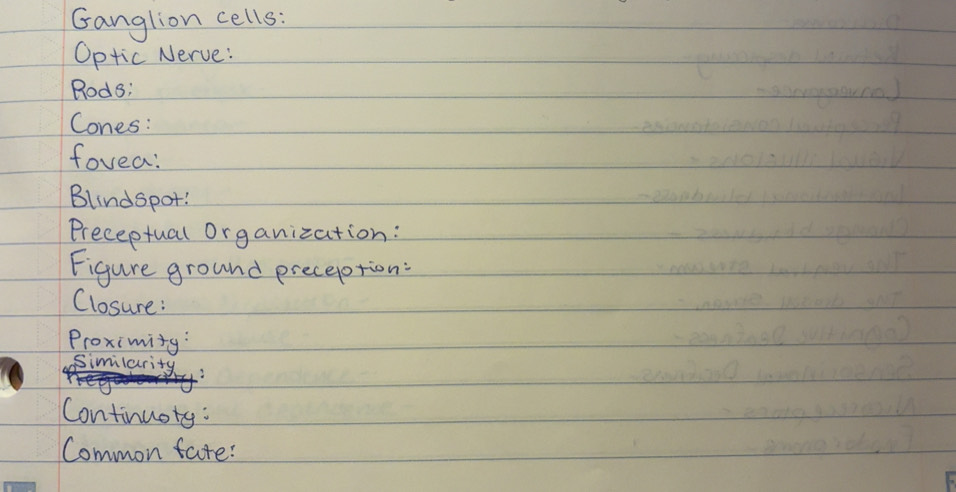 Ganglion cells:
Optic Nerve:
Rods:
Cones:
fovea:
Blindspot:
Preceptual Organization:
Figure ground preception:
Closure:
Proximity:
Similarity
:
Continuoty:
Common fate: